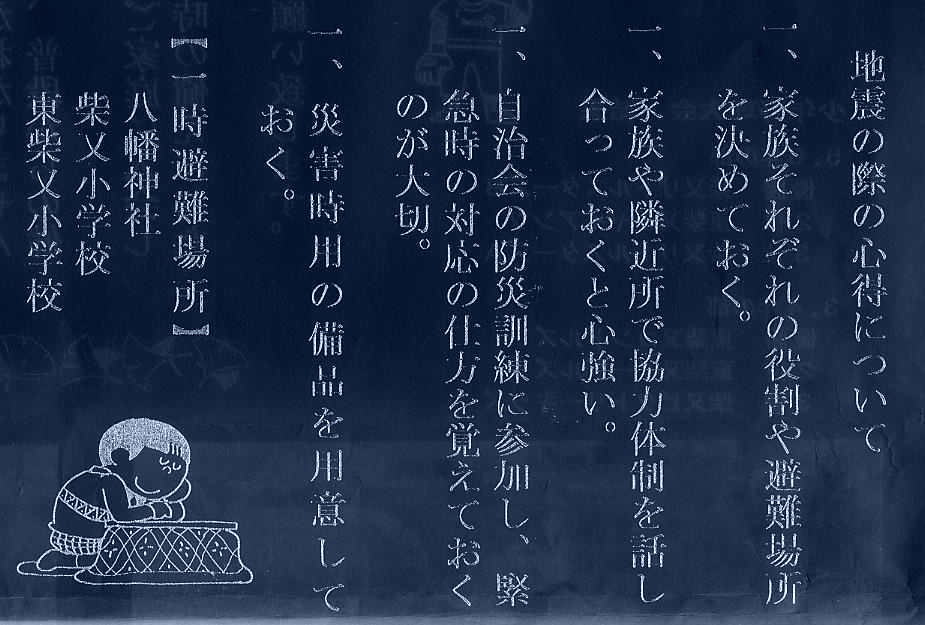 地震の際の心得について
一、家族それぞれの役割や避難場所
を決めておく。
一、家族や隣近所で協力体制を話し
合っておくと心強い。
一、自治会の防災訓練に参加し、緊
急時の対応の仕方を覚えておく
のが大切。
一、災害時用の備品を用意して
おく。
【一時避難場所】
八幡神社
柴又小学校
東柴又小学校